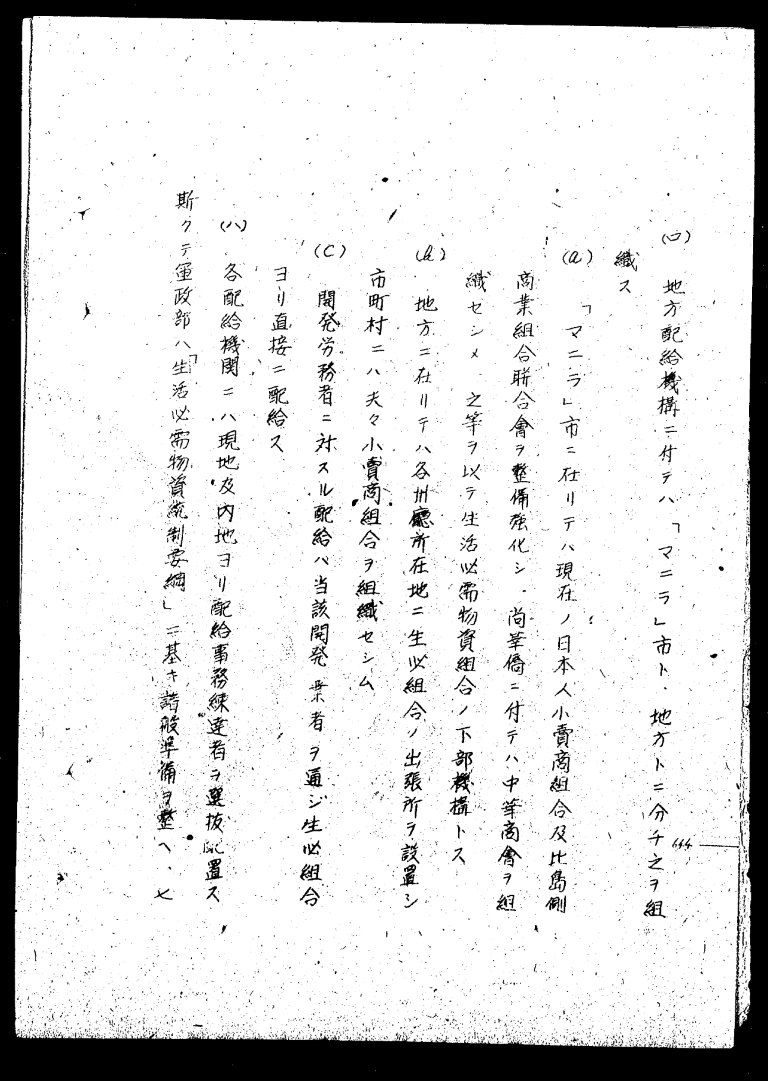 (ロ) 地方配給機構ニ付テハ「マニラ」市ト、地方トニ分チ之ヲ組
織ス
(a) 「マニラ」市ニ在リテハ現在ノ日本人小賣商組合及比島側
商業組合聯合會ヲ整備強化シ、尚華僑ニ付テハ中華商會ヲ組
織セシメ 之等ヲ以テ生活必需物資組合ノ下部機構トス
(b) 地方ニ在リテハ各州廳所在地ニ生必組合ノ出張所ヲ設置シ
市町村ニハ夫々小賣商組合ヲ組織セシム
(C) 開発労務者ニ対スル配給ハ当該開発業者ヲ通ジ生必組合
ヨリ直接ニ配給ス
(ハ) 各配給機関ニハ現地及内地ヨリ配給事務練達者ヲ選抜配置ス
斯クテ軍政部ハ「生活必需物資統制要綱」ニ基キ諸般準備ヲ整ヘ、七
644